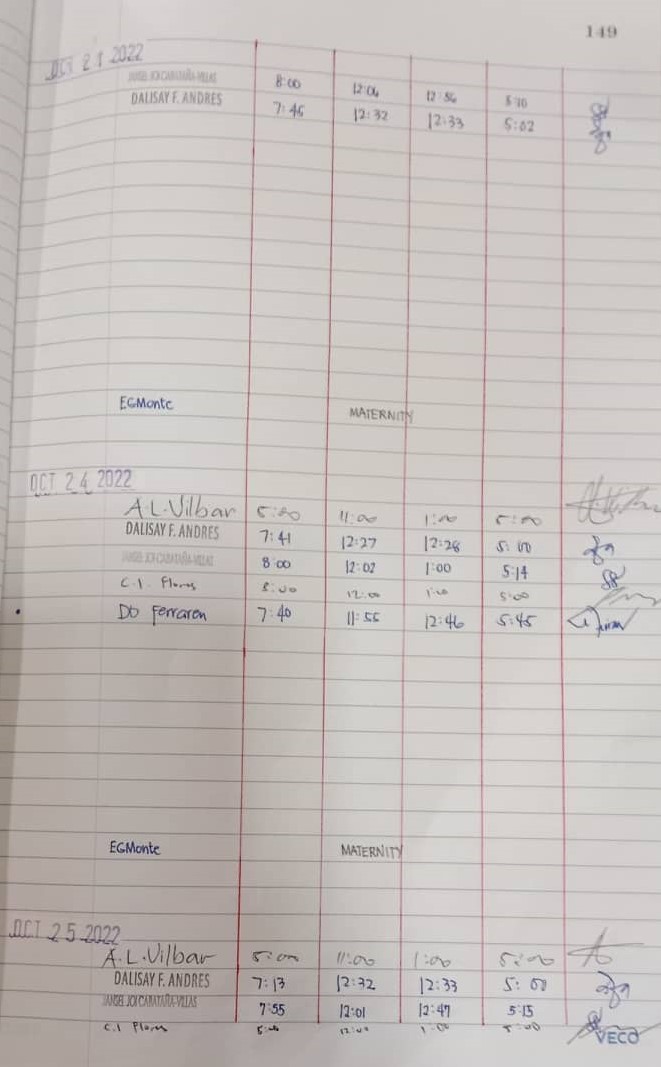 149
OCT 21 2022
JANSEL JOI CABATAÑA-VILLAS 8:00 12:06 12:56 5:10
DALISAY F. ANDRES 7:45 12:32 12:33 5:02
EGMonte MATERNITY
OCT 24 2022
A.L.Vilbar 5:00 11:00 1:00 5:00
DALISAY F. ANDRES 7:41 12:27 12:28 5:00
JANSEL JOI CABATAÑA-VILLAS 8:00 12:02 1:00 5:14
C.I. Flores 8:00 12:00 1:00 5:00
DD Ferraren 7:40 11:55 12:46 5:45
EGMonte MATERNITY
OCT 25 2022
A.L.Vilbar 5:00 11:00 1:00 5:00
DALISAY F. ANDRES 7:13 12:32 12:33 5:00
JANSEL JOI CABATAÑA-VILLAS 7:55 12:01 12:47 5:15
C.I Flores 8:00 12:00 1:00 5:00
VECO